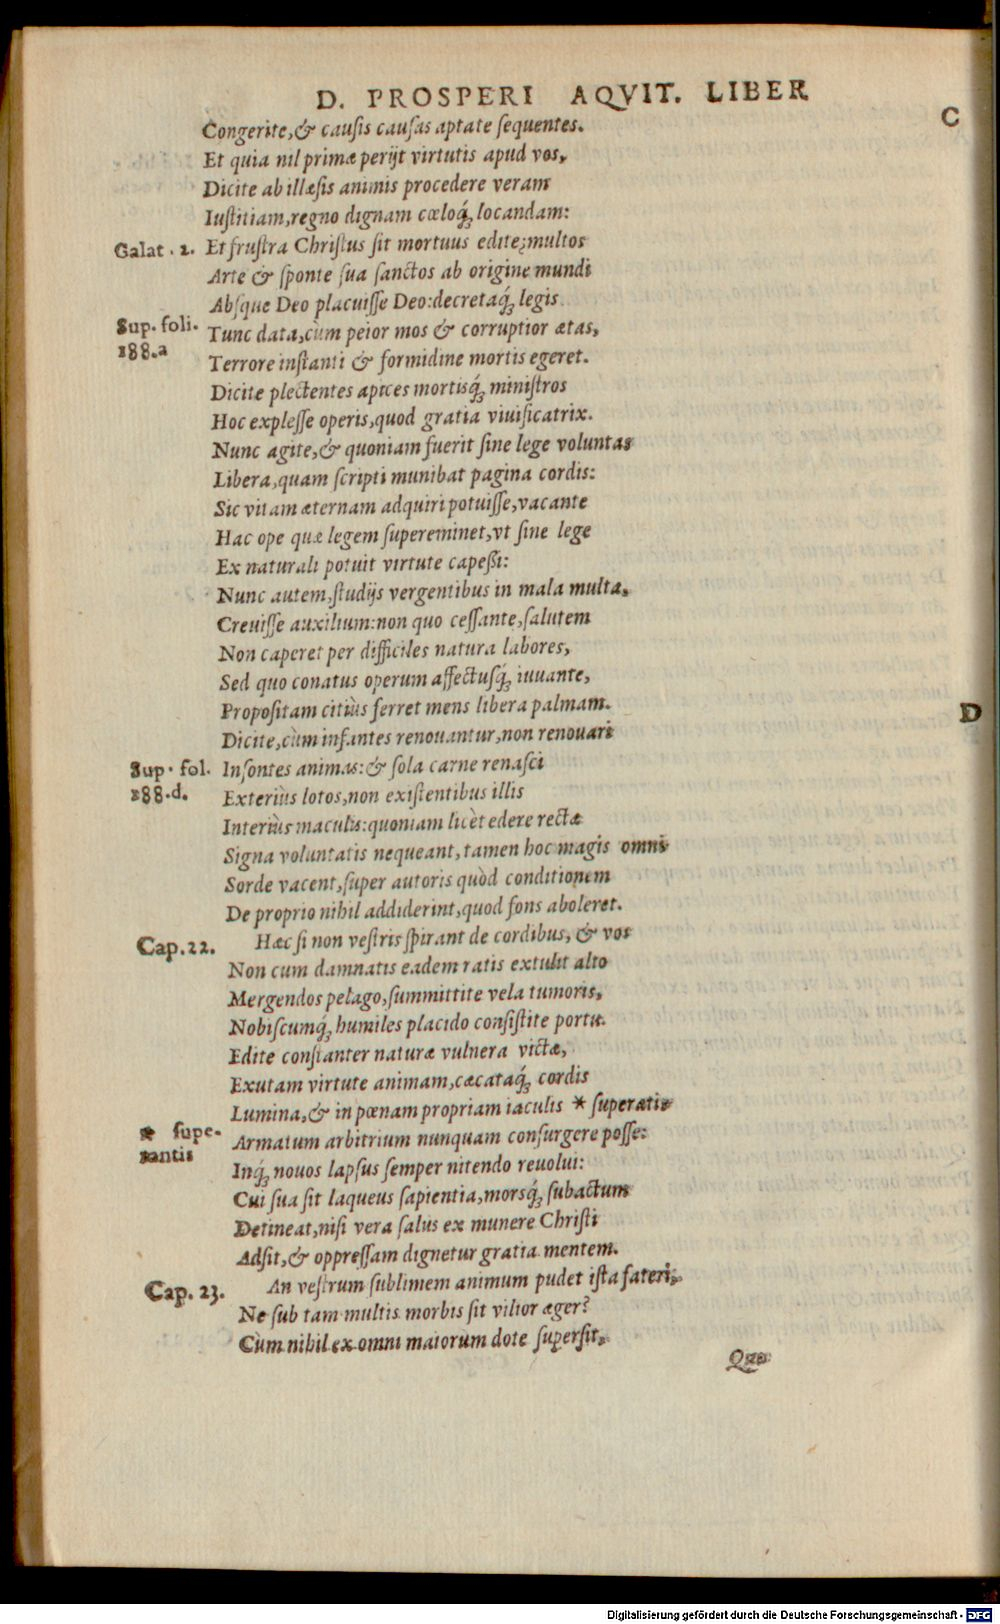 D. PROSPERI AQVIT. LIBER
C
Congerite,& causis causas aptate sequentes.
Et quia nil primæ perijt virtutis apud vos,
Dicite ab illæsis animis procedere veram
Iustitiam,regno dignam cœloq́; locandam:
Galat. 2. Et frustra Christus sit mortuus edite;multos
Arte & sponte sua sanctos ab origine mundi
Absque Deo placuisse Deo:decretaq́; legis
Sup. foli. 188.a
Tunc data,cùm peior mos & corruptior ætas,
Terrore instanti & formidine mortis egeret.
Dicite plectentes apices mortisq́; ministros
Hoc explesse operis,quod gratia viuificatrix.
Nunc agite,& quoniam fuerit sine lege voluntas
Libera,quam scripti munibat pagina cordis:
Sic vitam æternam adquiri potuisse,vacante
Hac ope quæ legem supereminet,vt sine lege
Ex naturali potuit virtute capessi:
Nunc autem,studijs vergentibus in mala multa,
Creuisse auxilium:non quo cessante,salutem
Non caperet per difficiles natura labores,
Sed quo conatus operum affectusq́; iuuante,
Propositam citiùs ferret mens libera palmam.
D
Dicite,cùm infantes renouantur,non renouari
Sup. fol. 188.d.
Insontes animas:& sola carne renasci
Exteriùs lotos,non existentibus illis
Interiùs maculis:quoniam licèt edere rectæ
Signa voluntatis nequeant,tamen hoc magis omni
Sorde vacent,super autoris quòd conditionem
De proprio nihil addiderint,quod fons aboleret.
Cap.22. Hæc si non vestris spirant de cordibus, & vos
Non cum damnatis eadem ratis extulit alto
Mergendos pelago,summittite vela tumoris,
Nobiscumq́; humiles placido consistite portu.
Edite constanter naturæ vulnera victæ,
Exutam virtute animam,cæcataq́; cordis
Lumina,& in pœnam propriam iaculis * superatis
* superantis
Armatum arbitrium nunquam consurgere posse:
Inq́; nouos lapsus semper nitendo reuolui:
Cui sua sit laqueus sapientia,morsq́; subactum
Detineat,nisi vera salus ex munere Christi
Adsit,& oppressam dignetur gratia mentem.
Cap. 23. An vestrum sublimem animum pudet ista fateri,
Ne sub tam multis morbis sit vilior æger?
Cùm nihil ex omni maiorum dote supersit,
Quo
Digitalisierung gefördert durch die Deutsche Forschungsgemeinschaft - DFG